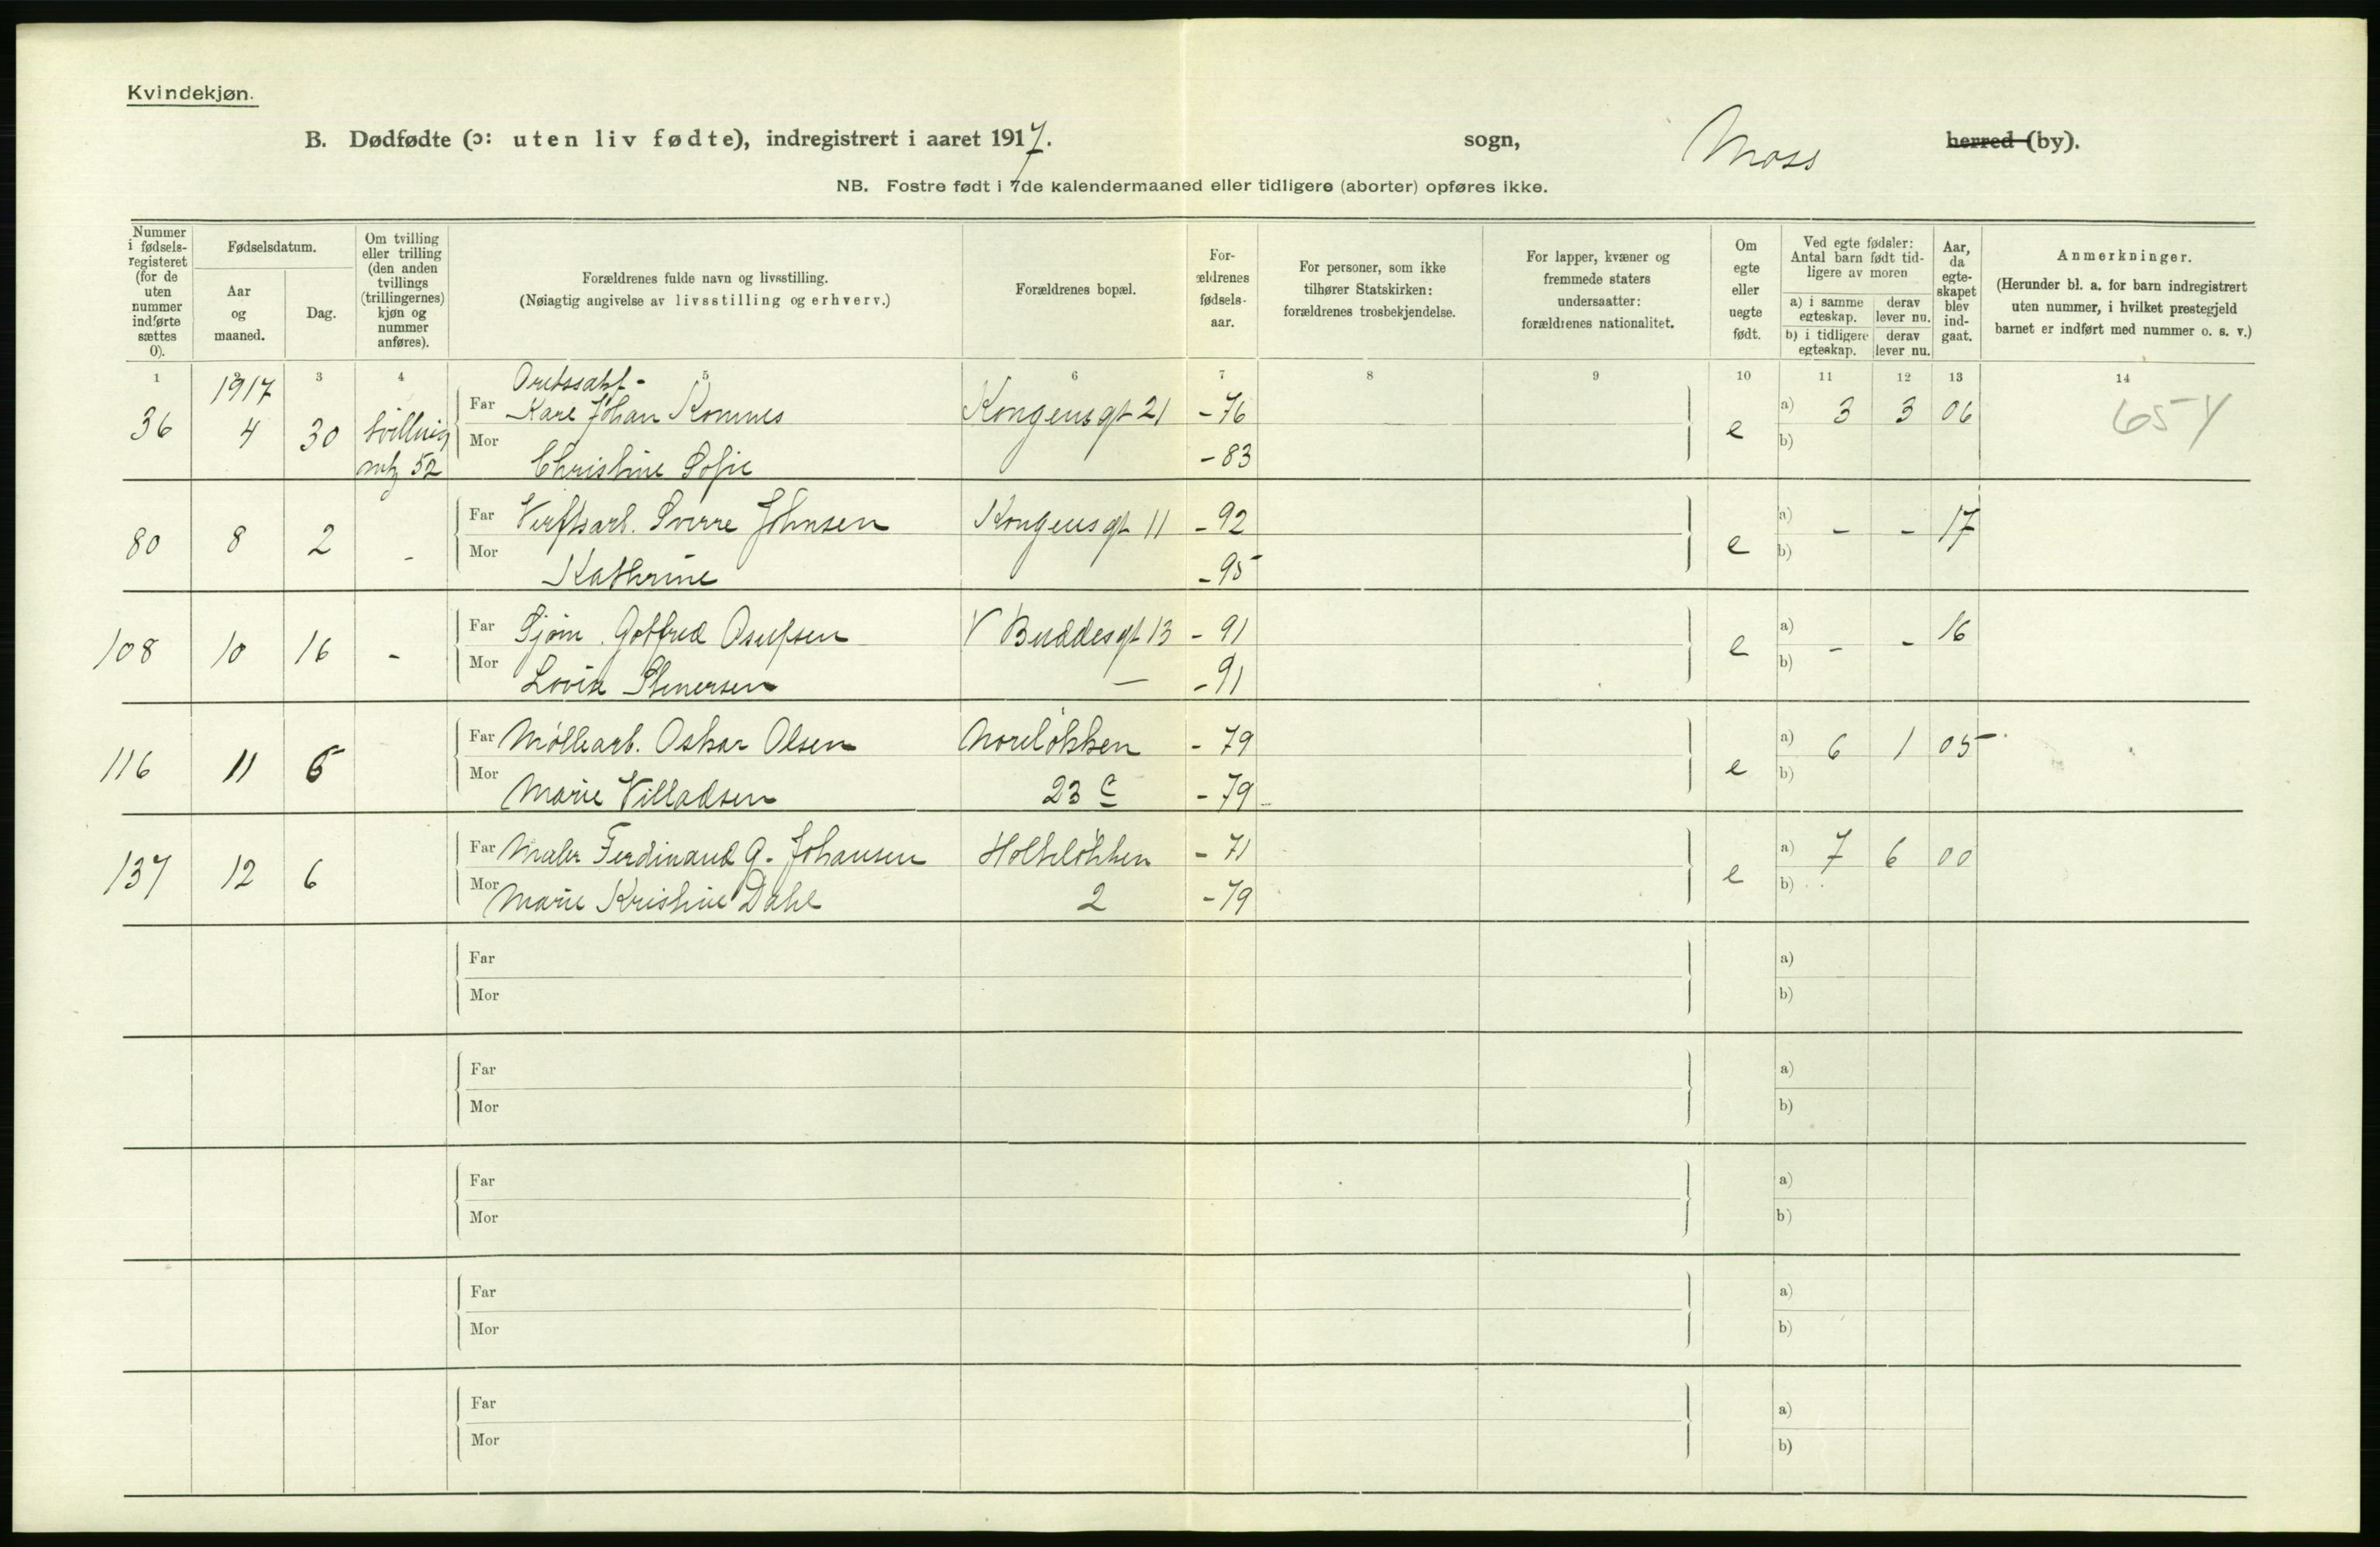 Kvindekjøn.
B. Dødfødte (ɔ: uten liv fødte), indregistrert i aaret 1917. sogn, Moss herred (by).
NB. Fostre født i 7de kalendermaaned eller tidligere (aborter) opføres ikke.
Nummer i fødsels-registeret (for de uten nummer indførte sættes 0).
Fødselsdatum.
Aar og maaned.
Dag.
Om tvilling eller trilling (den anden tvillings (trillingernes) kjøn og nummer anføres).
Forældrenes fulde navn og livsstilling.
(Nøiagtig angivelse av livsstilling og erhverv.)
Forældrenes bopæl.
For-ældrenes fødsels-aar.
For personer, som ikke tilhører Statskirken: forældrenes trosbekjendelse.
For lapper, kvæner og fremmede staters undersaatter: forældrenes nationalitet.
Om egte eller uegte født.
Ved egte fødsler: Antal barn født tid-ligere av moren
a) i samme egteskap.
derav lever nu.
b) i tidligere egteskap.
derav lever nu.
Aar, da egte-skapet blev ind-gaat.
Anmerkninger.
(Herunder bl. a. for barn indregistrert uten nummer, i hvilket prestegjeld barnet er indført med nummer o. s. v.)
1 2 3 4 5 6 7 8 9 10 11 12 13 14
1917
36 4 30 tvilling Far Karl Johan Komnes Kongensgt 21 - 76 e a) 3 3 06 654
52 Mor Christine Sofie - 83 b)
80 8 2 - Far Verftsarb. Sverre Johnsen Kongensgt 11 - 92 e a) - - 17
Mor Kathrine - 95 b)
108 10 16 - Far Sjøm. Gotfred Osufsen V Buddesgt 13 - 91 e a) - - 16
Mor Lovise Stenersen — - 91 b)
116 11 5 Far Møllearb. Oskar Olsen Noreløkken - 79 e a) 6 1 05
Mor Marie Villadsen 23 c - 79 b)
137 12 6 Far Maler Ferdinand G. Johansen Holteløkken - 71 e a) 7 6 00
Mor Marie Kristine Dahl 2 - 79 b)
Far a)
Mor b)
Far a)
Mor b)
Far a)
Mor b)
Far a)
Mor b)
Far a)
Mor b)